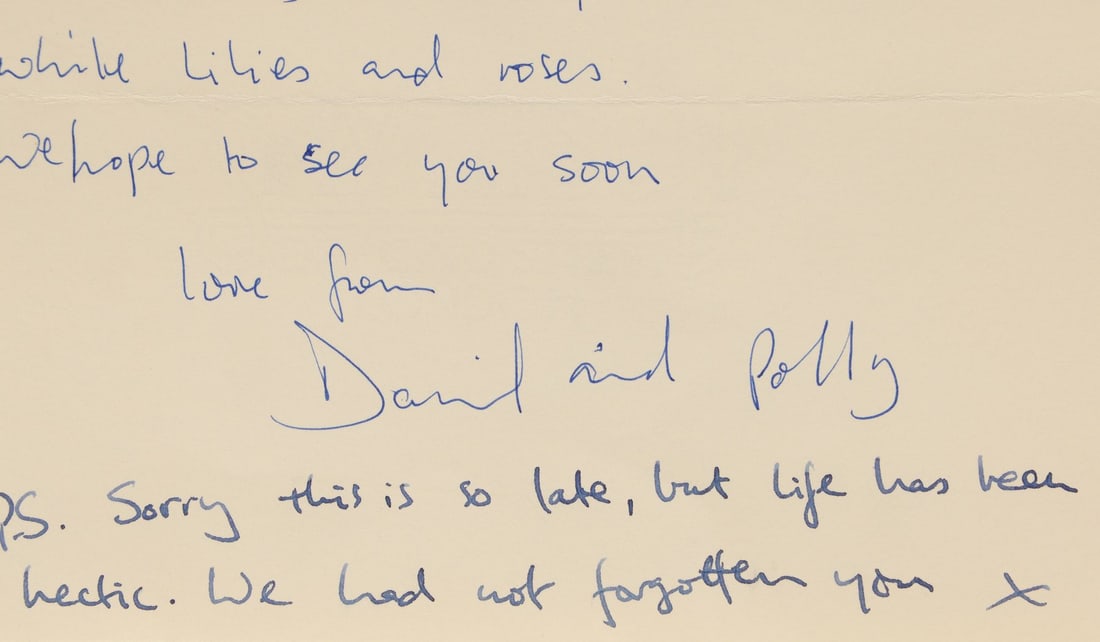 white lilies and roses.
We hope to see you soon
love from
David and Polly
PS. Sorry this is so late, but life has been
hectic. We had not forgotten you X